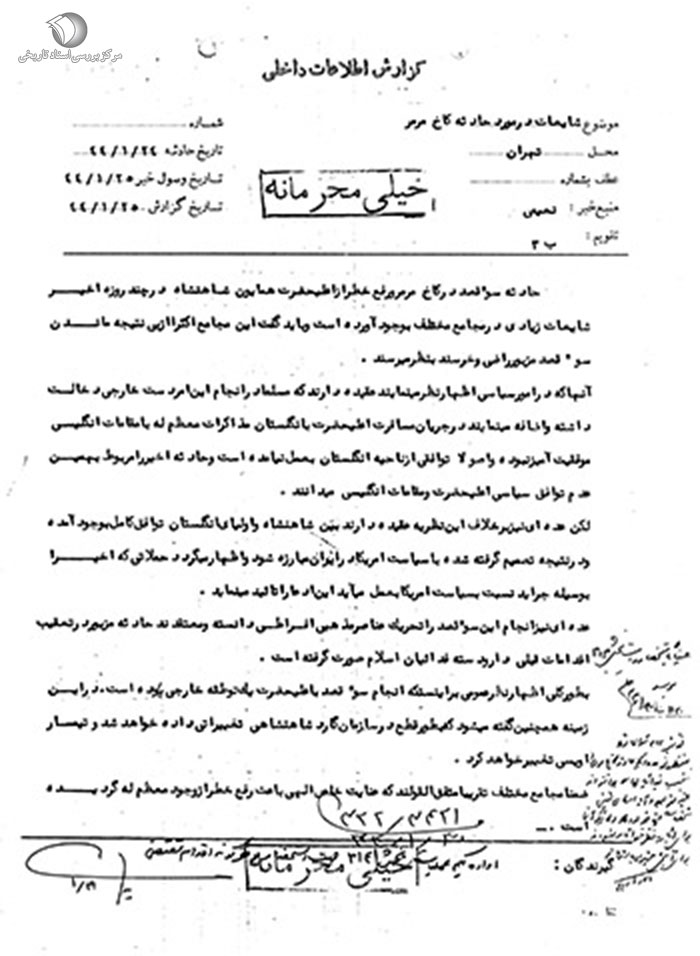 مرکز بررسی اسناد تاریخی
گزارش اطلاعات داخلی
موضوع شایعات در مورد حادثه کاخ مرمر
شماره
محل تهران
تاریخ حادثه ۴۴/۱/۲۲
عطف بشماره
تاریخ وصول خبر ۴۴/۱/۲۵
منبع خبر :
تاریخ گزارش ۴۴/۱/۲۵
تقویم : ب ۳
خیلی محرمانه
حادثه سوءقصد در کاخ مرمر و رفع خطر از اعلیحضرت همایون شاهنشاه در چند روزه اخیر
شایعات زیادی در مجامع مختلف بوجود آورده است و باید گفت این مجامع اکثرا از بی نتیجه ماندن
سوء قصد مزبور راضی و خرسند بنظر میرسند .
آنها که در امور سیاسی اظهار نظر مینمایند عقیده دارند که مسلما در انجام این امر دست خارجی دخالت
داشته و اضافه مینمایند در جریان مسافرت اعلیحضرت بانگستان مذاکرات معظم له با مقامات انگلیسی
موفقیت آمیز نبوده و اصولا توافقی از ناحیه انگستان بعمل نیامده است و حادثه اخیر را مربوط بهمین
عدم توافق سیاسی اعلیحضرت و مقامات انگلیسی میدانند .
لکن عده ای نیز برخلاف این نظریه عقیده دارند بین شاهنشاه و اولیای انگستان توافق کامل بوجود آمده
و در نتیجه تصمیم گرفته شده با سیاست امریکا در ایران مبارزه شود و اظهار میگردد حملاتی که اخیرا
بوسیله جراید نسبت بسیاست امریکا بعمل میآید این ادعا را تائید مینماید .
عده ای نیز انجام این سوءقصد را تحریک عناصر مذهبی افراطی دانسته و معتقدند حادثه مزبور در تعقیب
اقدامات قبلی دارودسته فدائیان اسلام صورت گرفته است .
بطور کلی اظهار نظر عمومی بر اینستکه انجام سوء قصد باعلیحضرت یک توطئه خارجی بوده است، در این
زمینه همچنین گفته میشود که بطور قطع در سازمان گارد شاهنشاهی تغییراتی داده خواهد شد و تیمسار
اویسی تغییر خواهد کرد .
ضمنا مجامع مختلف تقریبا متفق القولند که عنایت خاص الهی باعث رفع خطر از وجود معظم له گردیده
است .
گیرندگان :
اداره کل
خیلی محرمانه